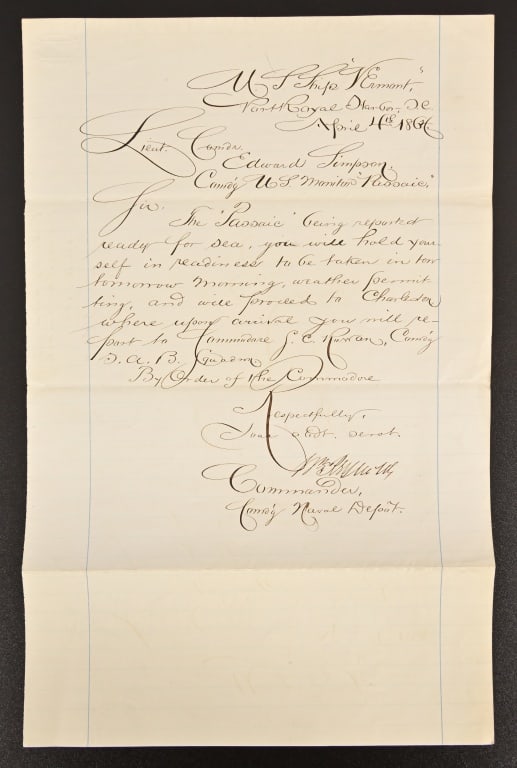 U S Ship "Vermont,"
Port Royal Harbor. SC
April 4th 1864.
Lieut. Comdr.
Edward Simpson.
Comd'g U.S. Monitor "Passaic,"
Sir.
The "Passaic" being reported
ready for sea, you will hold your
self in readiness to be taken in tow
tomorrow morning, weather permit
ting, and will proceed to Charleston
where upon arrival you will re-
port to Commodore S. C. Rowan, Comd'g
S. A. B. Squadron
By Order of the Commodore
Respectfully,
Your obdt. servt.
Wm Reynolds
Commander,
Comd'g Naval Depôt.